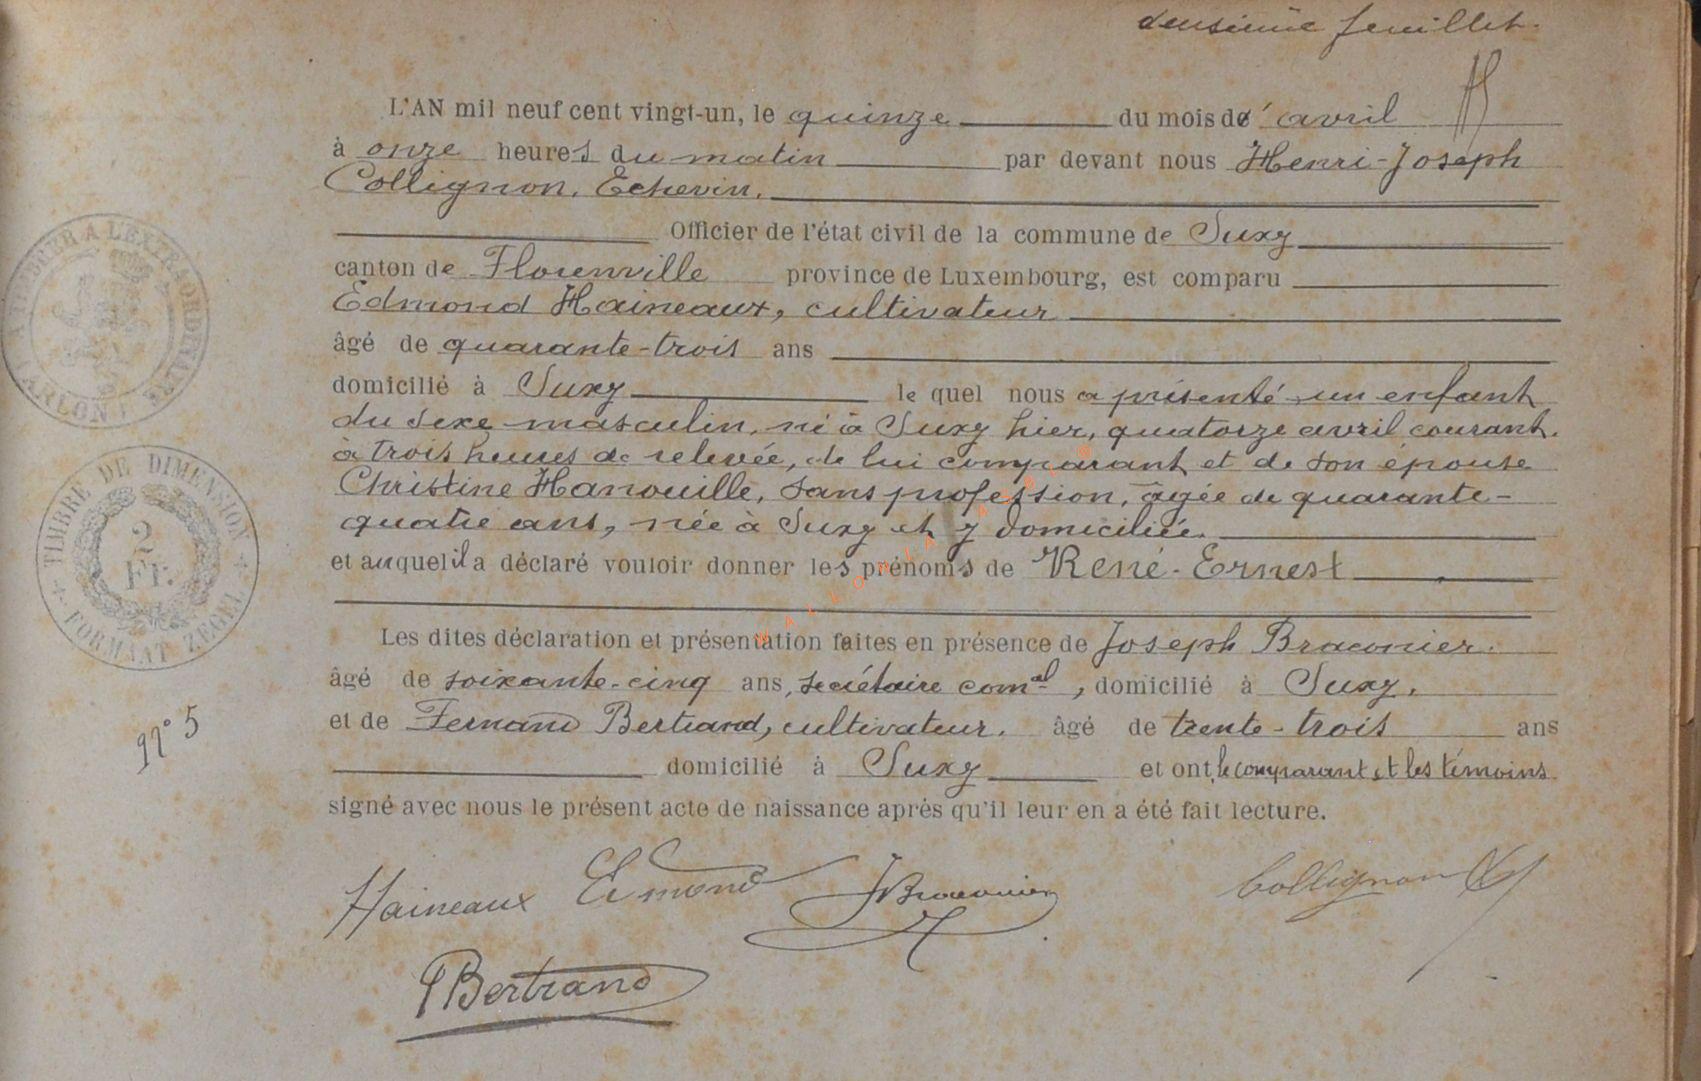 deuxième feuillet.
L'AN mil neuf cent vingt-un, le quinze du mois d' avril
à onze heures du matin par devant nous Henri-Joseph
Collignon, Echevin,
Officier de l'état civil de la commune de Suxy
canton de Florenville province de Luxembourg, est comparu
Edmond Haineaux, cultivateur
âgé de quarante-trois ans
domicilié à Suxy le quel nous a présenté un enfant
du sexe masculin, né à Suxy hier, quatorze avril courant,
à trois heures de relevée, de lui comparant et de son épouse
Christine Hanouille, sans profession, âgée de quarante-
quatre ans, née à Suxy et y domiciliée.
et auquel il a déclaré vouloir donner les prénoms de René-Ernest
Les dites déclaration et présentation faites en présence de Joseph Braconier.
âgé de soixante-cinq ans, secrétaire comal, domicilié à Suxy,
et de Fernand Bertrand, cultivateur, âgé de trente-trois ans
domicilié à Suxy et ont, le comparant et les témoins
signé avec nous le présent acte de naissance après qu'il leur en a été fait lecture.
Haineaux Edmond JBraconier Collignon
FBertrand
N° 5
A TIMBRER A L'EXTRAORDINAIRE
ARLON
TIMBRE DE DIMENSION
2
Fr.
FORMAAT ZEGEL